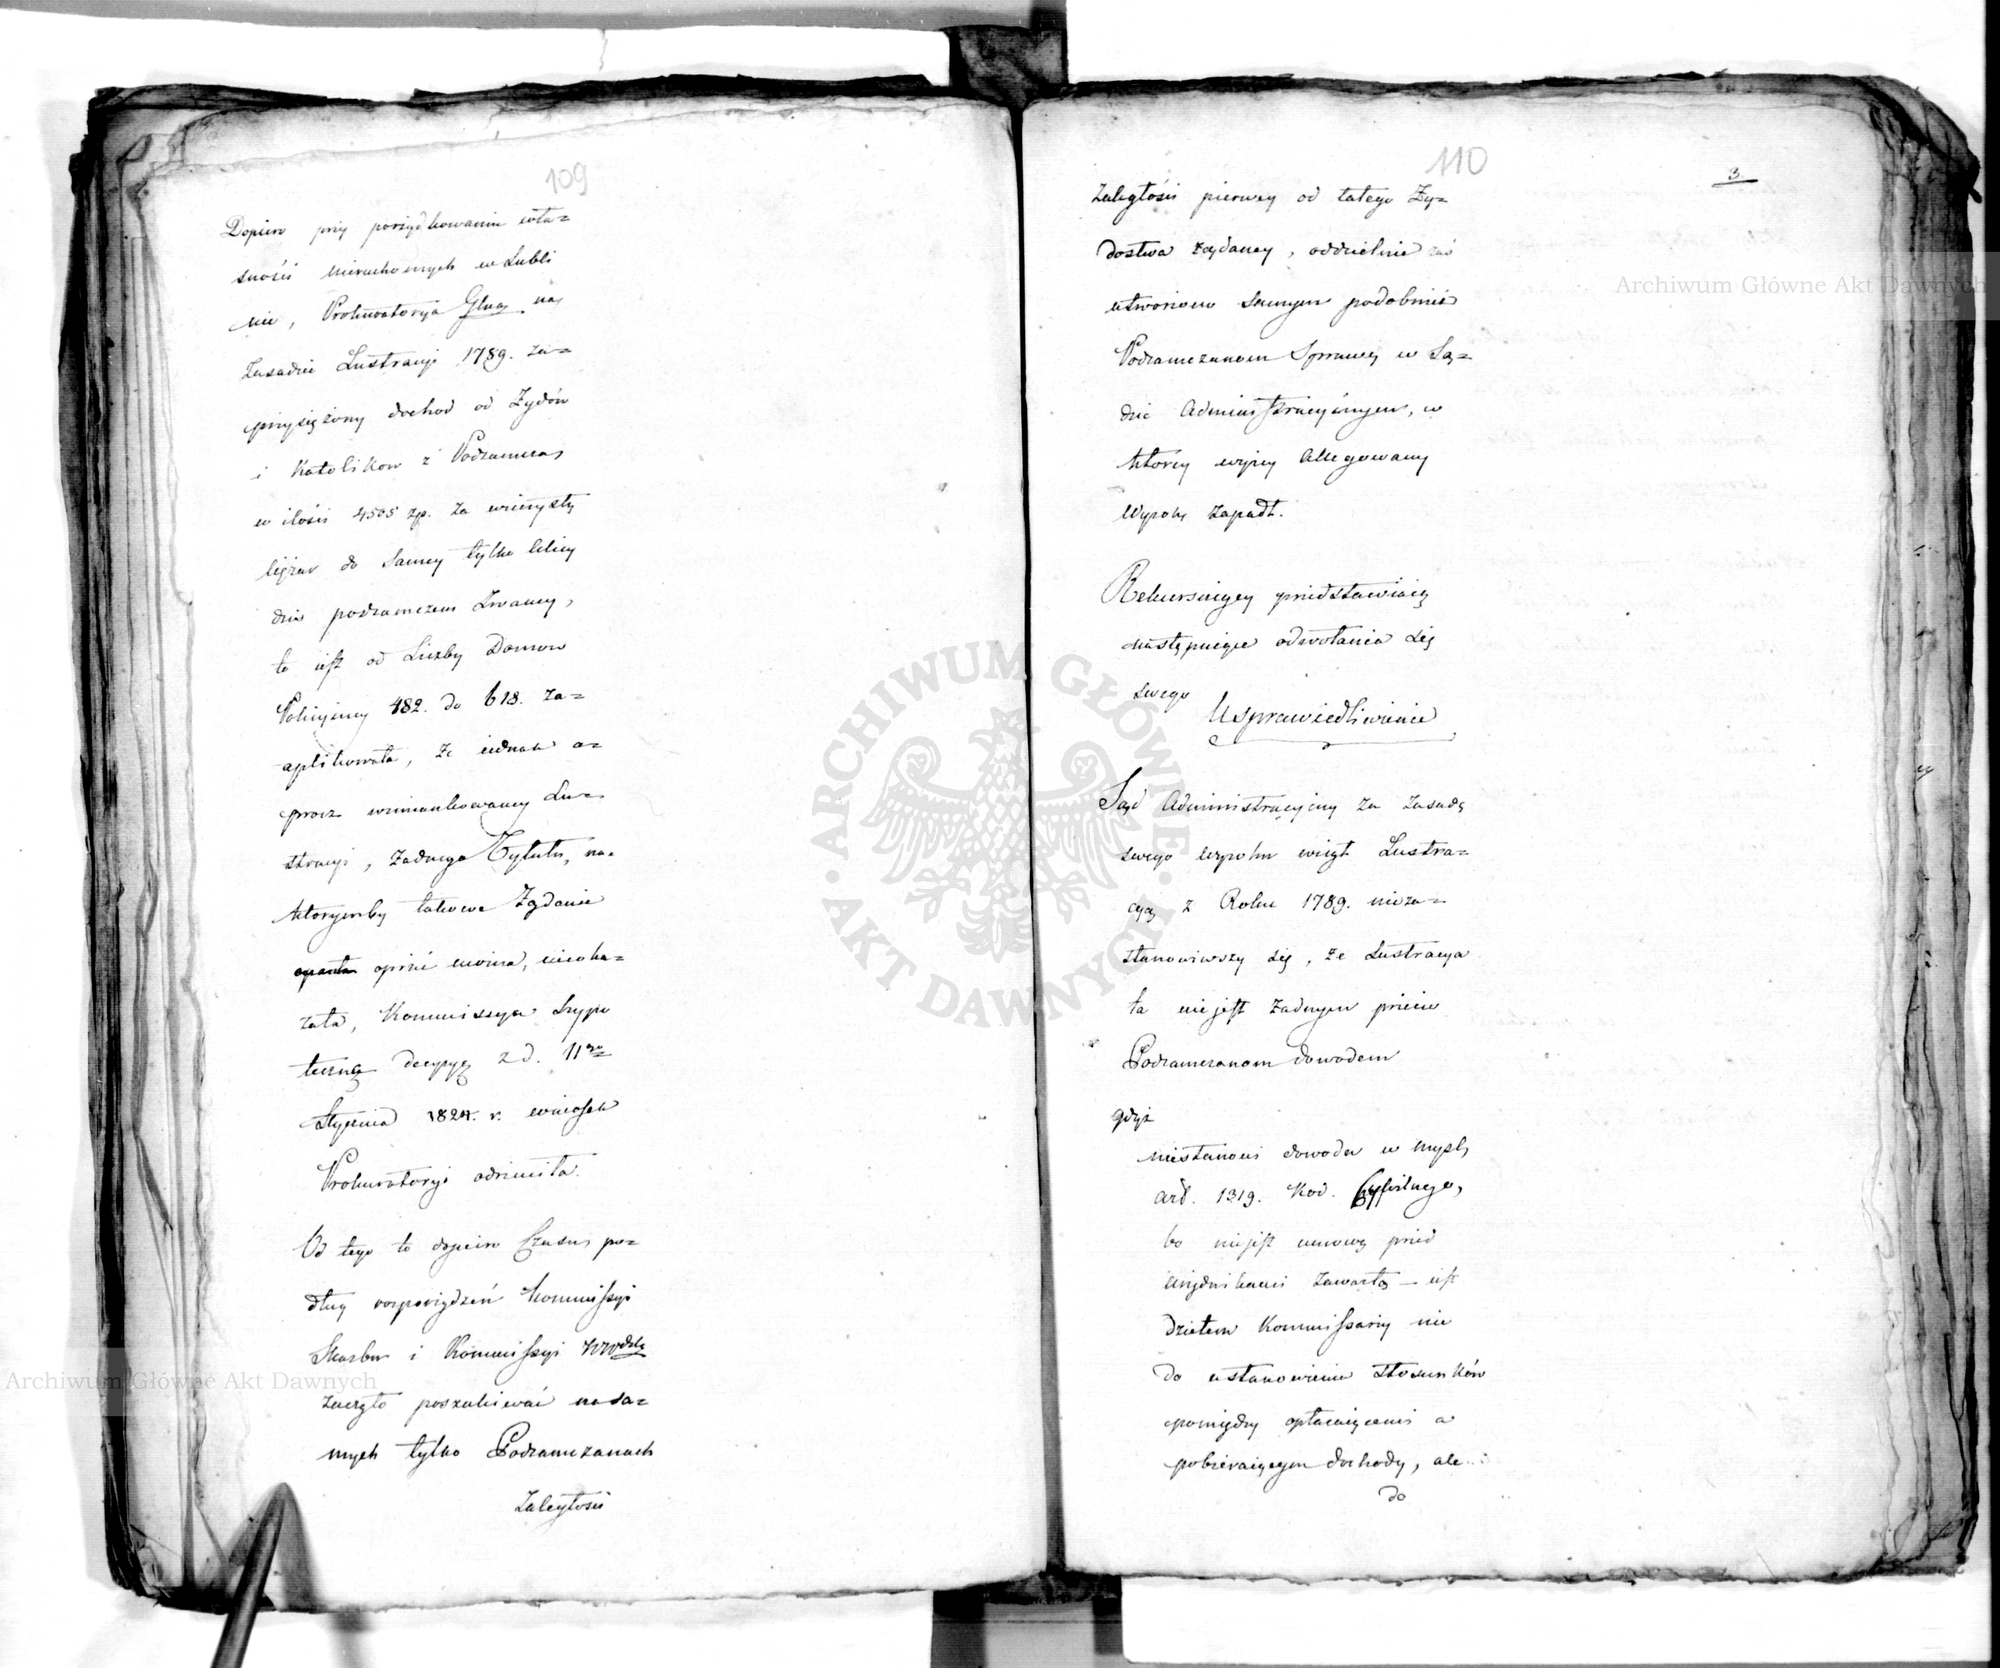 109
Dopiero przy porządkowaniu wła=
sności nieruchomych w Lubli
nie, Prokuratorya Glna na
Zasadzie Lustracyi 1789. za=
przysiężony dochod od Żydów
i Katolikow z Podzamcza
w ilości 4505 zp. za wieczysty
do samey tylko ulicy
dziś podzamczem zwaney,
to iest od Liczby Domow
Policyiney 482. do 618. za=
aplikowała, że iednak o=
procz wzmiankowaney Lu=
stracyi, żadnego Tytułu, na
ktorymby takowe Żądanie
oprzeć można, nieoka=
zała, Kommissya hypo
teczna decyzyą z d. 11go
Stycznia 1824. r. wniosek
Prokuratoryi odrzuciła.
Od tego to dopiero Czasu po=
dług rozporządzeń Kommissyi
Skarbu i Kommissyi Wwdzkiey
zaczęto poszukiwać na sa=
mych tylko Podzamczanach
Zaległości
110
3.
Zaległości pierwey od całego Ży=
dostwa żądaney, oddzielnie zaś
utworzono samym podobnież
Podzamczanom Sprawę w Są=
dzie Administracyinym, w
ktorey wyżey allegowany
Wyrok zapadł.
Rekursuiący przedstawiaią
następuiące odwołania się
swego
Usprawiedliwienie
Sąd Administracyiny za zasadę
swego wyroku wziął Lustra=
cyą z Roku 1789. nieza=
stanowiwszy się, że Lustracya
ta niejest żadnym przeciw
Podzamczanom dowodem
gdyż
niestanowi dowodu w myśl
art. 1319. Kod. Cywilnego,
bo niejest umową przed
urzędnikami zawartą – iest
dziełem Kommissarzy nie
do ustanowienia stosunków
pomiędzy opłacaiącemi a
pobieraiącym dochody, ale
do
Archiwum Główne Akt Dawnych
Archiwum Główne Akt Dawnych
ARCHIWUM GŁÓWNE · AKT DAWNYCH ·